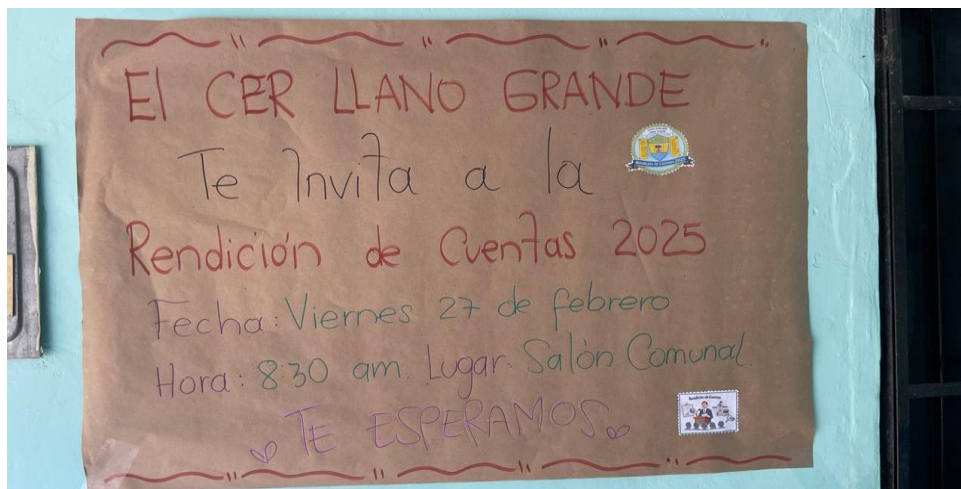 El CER LLANO GRANDE
Te Invita a la
Rendición de Cuentas 2025
Fecha: Viernes 27 de febrero
Hora: 8:30 am. Lugar: Salón Comunal.
TE ESPERAMOS
Rendición de Cuentas